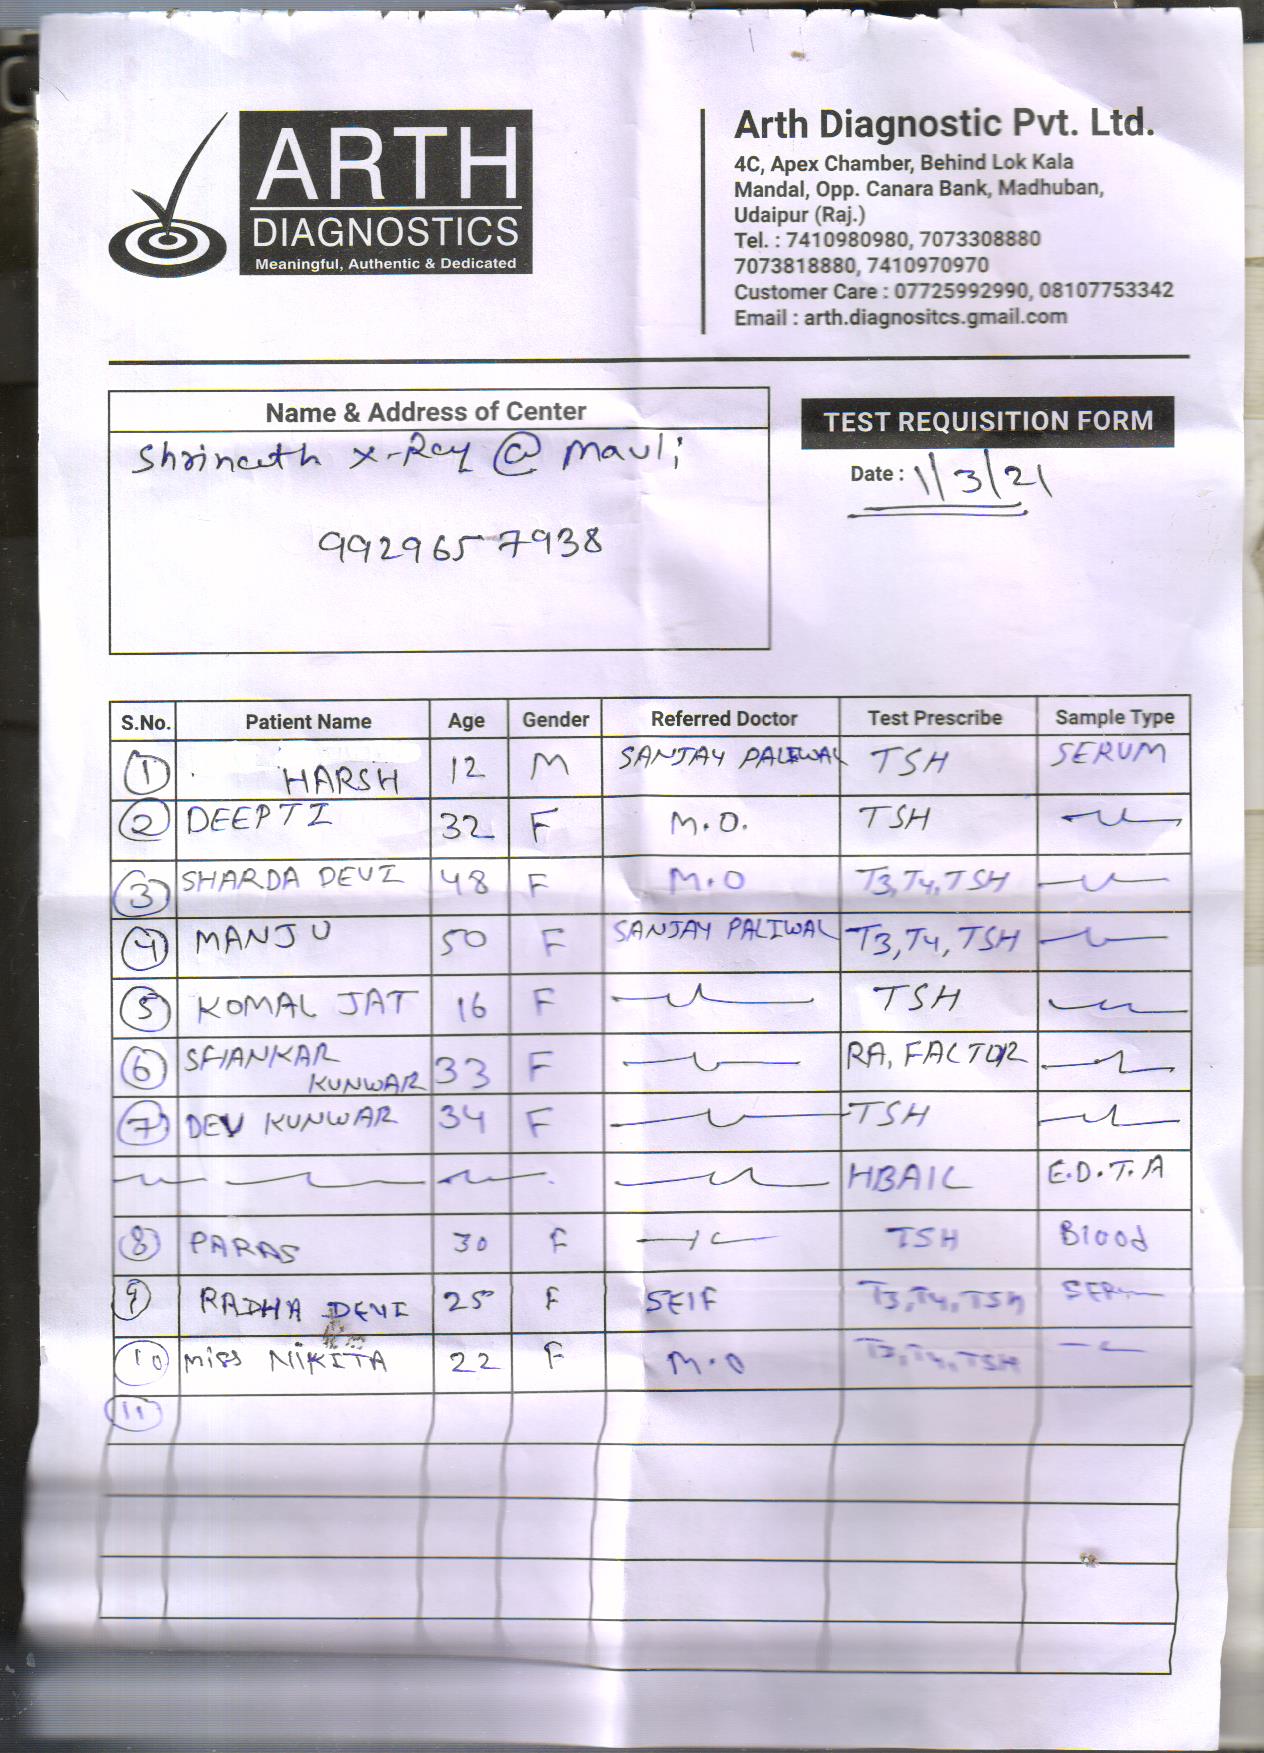 ARTH
DIAGNOSTICS
Meaningful, Authentic & Dedicated
Arth Diagnostic Pvt. Ltd.
4C, Apex Chamber, Behind Lok Kala
Mandal, Opp. Canara Bank, Madhuban,
Udaipur (Raj.)
Tel. : 7410980980, 7073308880
7073818880, 7410970970
Customer Care : 07725992990, 08107753342
Email : arth.diagnositcs.gmail.com
Name & Address of Center
Shrinath X-Ray @ Mauli
9929657938
TEST REQUISITION FORM
Date : 1/3/21
S.No. Patient Name Age Gender Referred Doctor Test Prescribe Sample Type
1 HARSH 12 M SANJAY PALIWAL TSH SERUM
2 DEEPTI 32 F M.O. TSH
3 SHARDA DEVI 48 F M.O T3, T4, TSH
4 MANJU 50 F SANJAY PALIWAL T3, T4, TSH
5 KOMAL JAT 16 F TSH
6 SHANKAR KUNWAR 33 F RA, FACTOR
7 DEV KUNWAR 34 F TSH
HBAIC E.D.T.A
8 PARAS 30 F TSH Blood
9 RADHA DEVI 25 F SElF T3, T4, TSH SERUM
10 MISS NIKITA 22 F M.O T3, T4, TSH
11